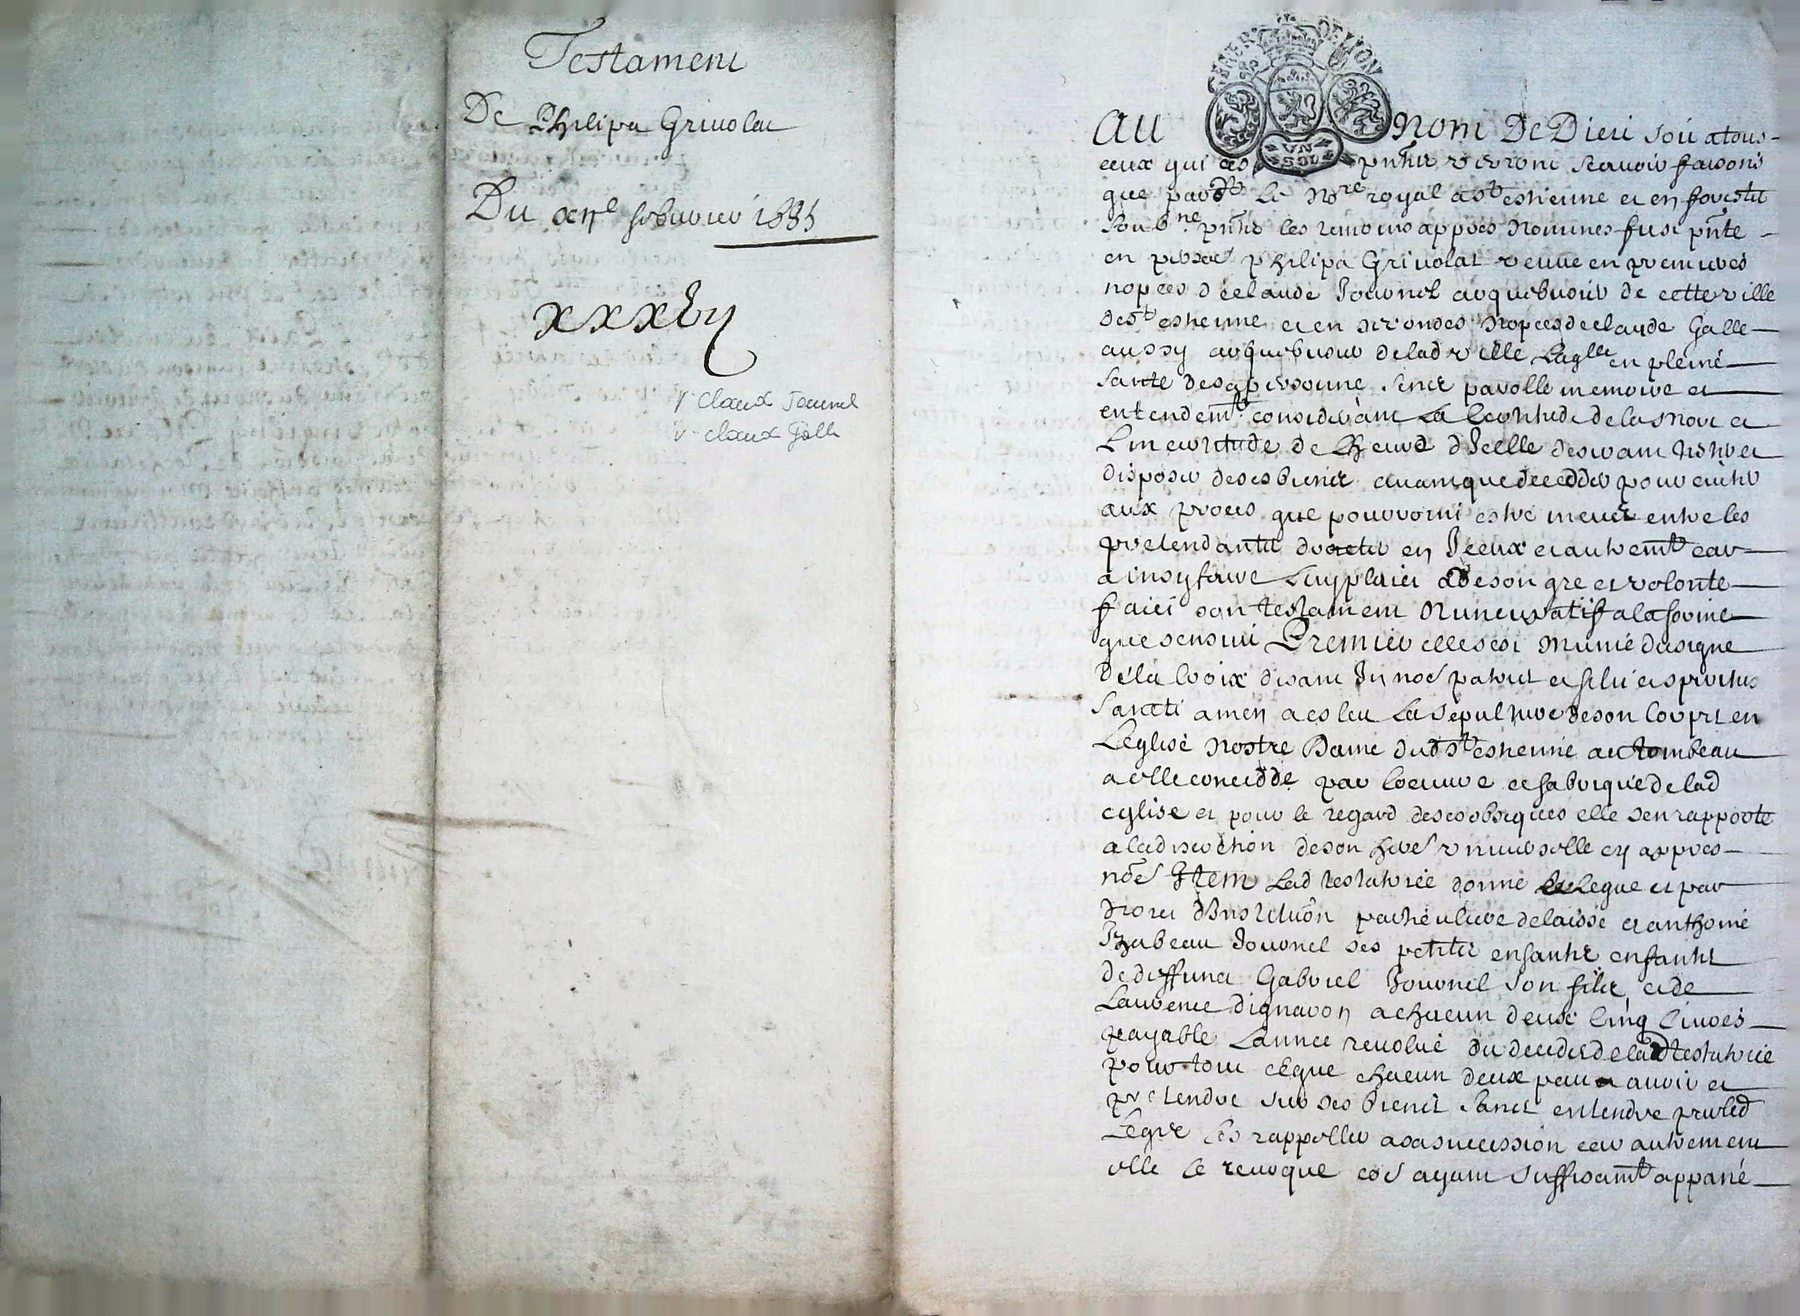 Testament
De Philipa Griuolat
Du
xxxvij
v. claux Journel
v. claux Galle
GENER DE LION
UN
SOL
Au Nom De Dieu soit a tous
ceux qui ces verront scauoir faisons
que pard le Nre royal a st estienne et en forestz
les temoins appres nommes fust pnte
en philipa Griuolat veuue en premieres
nopces de claude Journel arquebusier de cette ville
de st estienne et en secondes nopces de claude Galle
aussy arquebusier de lad ville laqlle en pleine
sante de sa personne sens parolle memoire et
entendemt considerant la certitude de la mort et
Lincertitude de Lheure dicelle desirant
disposer de ses biens auant que deceder pour euiter
aux proces que pourroint estre meuz entre les
pretendantz droictz en Iceux et autremt car
ainsy faire luy plaict de son gre et volonte
faict son testament nuncupatif a la forme
que sensuit Premier elle sest munie du signe
de la croix disant In noe patris et filii et spiritus
Sancti amen a esleu La sepulture de son corps en
Leglise Nostre Dame dud st estienne au tombeau
a elle concedde par loeuure et fabrique de lad
eglise et pour le regard de ses obseques elle sen rapporte
a la discretion de son here vniuerselle cy appres
noe Item Lad testatrice donne legue et par
droict dInstitution particuliere delaisse et anthoine
Izabeau Journel ses petitz enfantz enfantz
de deffunct Gabriel Journel son filz et de
Laurence dignaron a chacun deux cinq liures
payable Lannee reuolue du decedz de lad testatrice
pour tout ce que chacun deux peut auoir et
pretendre sur ses biens sans entendre pour led
Legat les rappeller a sa succession car autrement
elle le reuoque ayant suffisamt appane